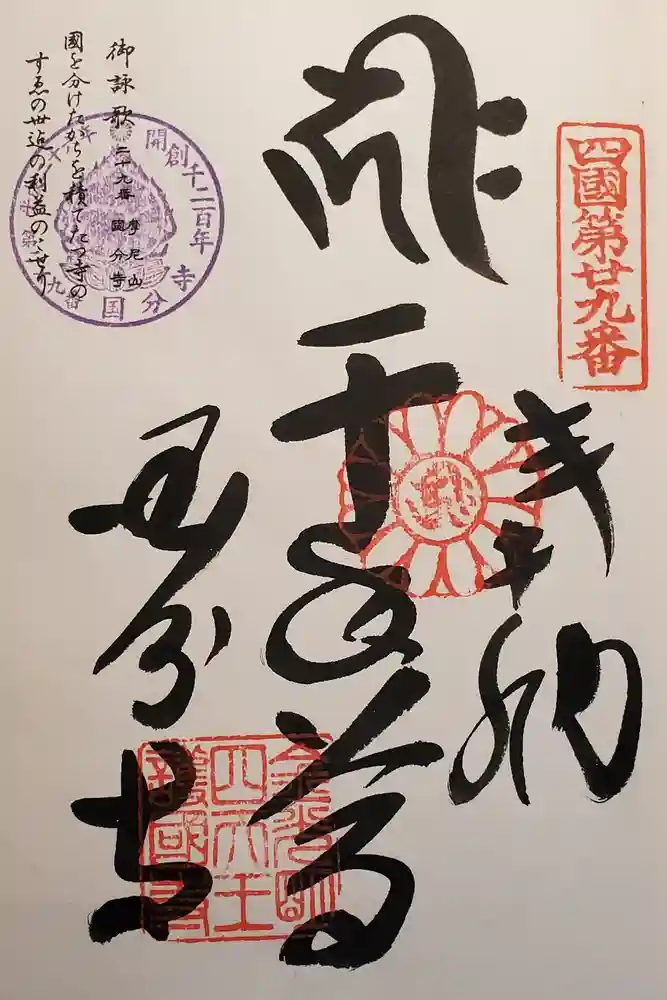 四國第廿九番
奉納
千手尊
国分寺
金光明
四天王
護國寺
開創千二百年
国分寺
御詠歌
二十九番
摩尼山
國分寺
國を分けたからを積てたつ寺の
すゑの世迄の利益のこせり